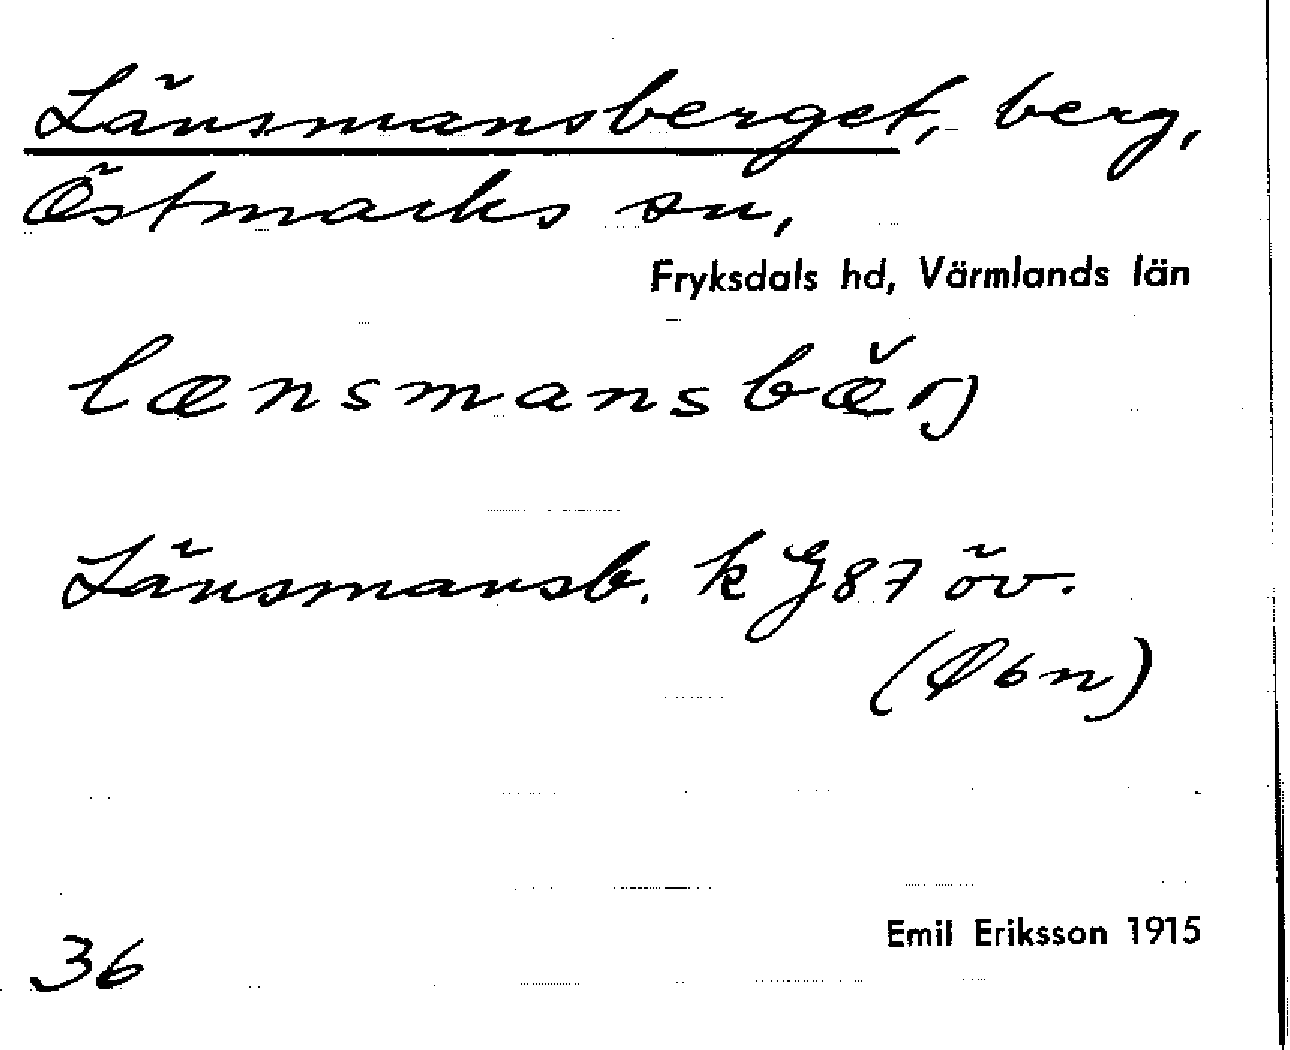 Länsmansberget, berg,
Östmarks sn,
Fryksdals hd, Värmlands län
lænsmansbæ̆rj
Länsmansb. k J87 öv.
(Öbn)
Emil Eriksson 1915
36